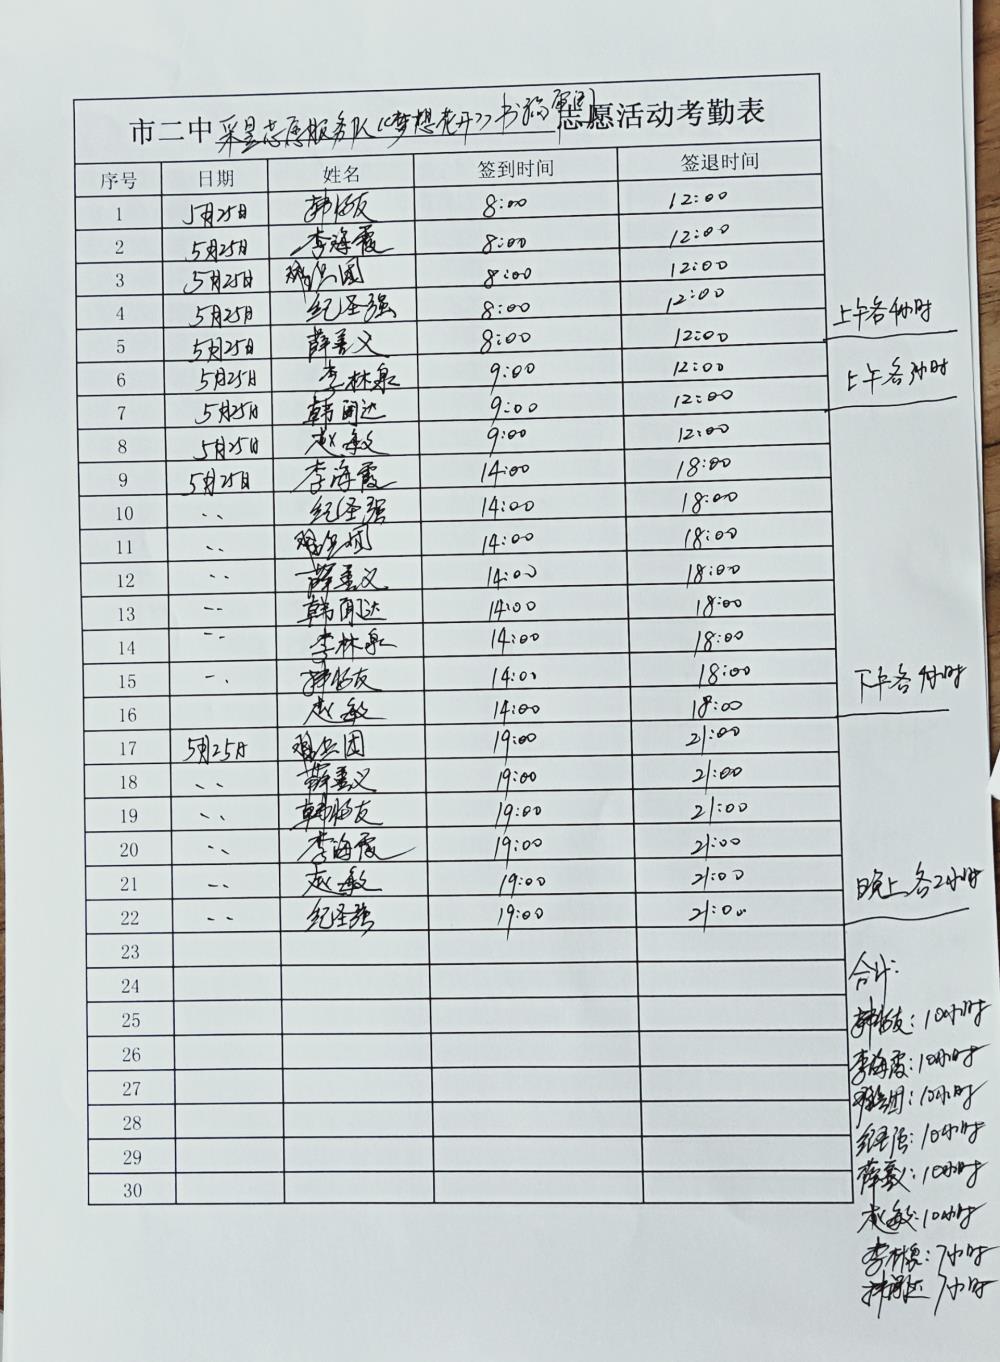 市二中采星志愿服务队《梦想花开》书稿审阅志愿活动考勤表
序号 日期 姓名 签到时间 签退时间
1 5月25日 韩怡友 8:00 12:00
2 5月25日 李海霞 8:00 12:00
3 5月25日 8:00 12:00
4 5月25日 纪圣强 8:00 12:00
上午各4小时
5 5月25日 薛善义 8:00 12:00
6 5月25日 李林泉 9:00 12:00
上午各3小时
7 5月25日 韩闻达 9:00 12:00
8 5月25日 赵敏 9:00 12:00
9 5月25日 李海霞 14:00 18:00
10 〃 纪圣强 14:00 18:00
11 〃 14:00 18:00
12 〃 薛善义 14:00 18:00
13 〃 韩闻达 14:00 18:00
14 〃 李林泉 14:00 18:00
15 〃 韩怡友 14:00 18:00
下午各4小时
16 赵敏 14:00 18:00
17 5月25日 19:00 21:00
18 〃 薛善义 19:00 21:00
19 〃 韩怡友 19:00 21:00
20 〃 李海霞 19:00 21:00
21 〃 赵敏 19:00 21:00
晚上各2小时
22 〃 纪圣强 19:00 21:00
23
24
25
26
27
28
29
30
合计:
韩怡友:10小时
李海霞:10小时
:10小时
纪圣强:10小时
薛善义:10小时
赵敏:10小时
李林泉:7小时
韩闻达 7小时